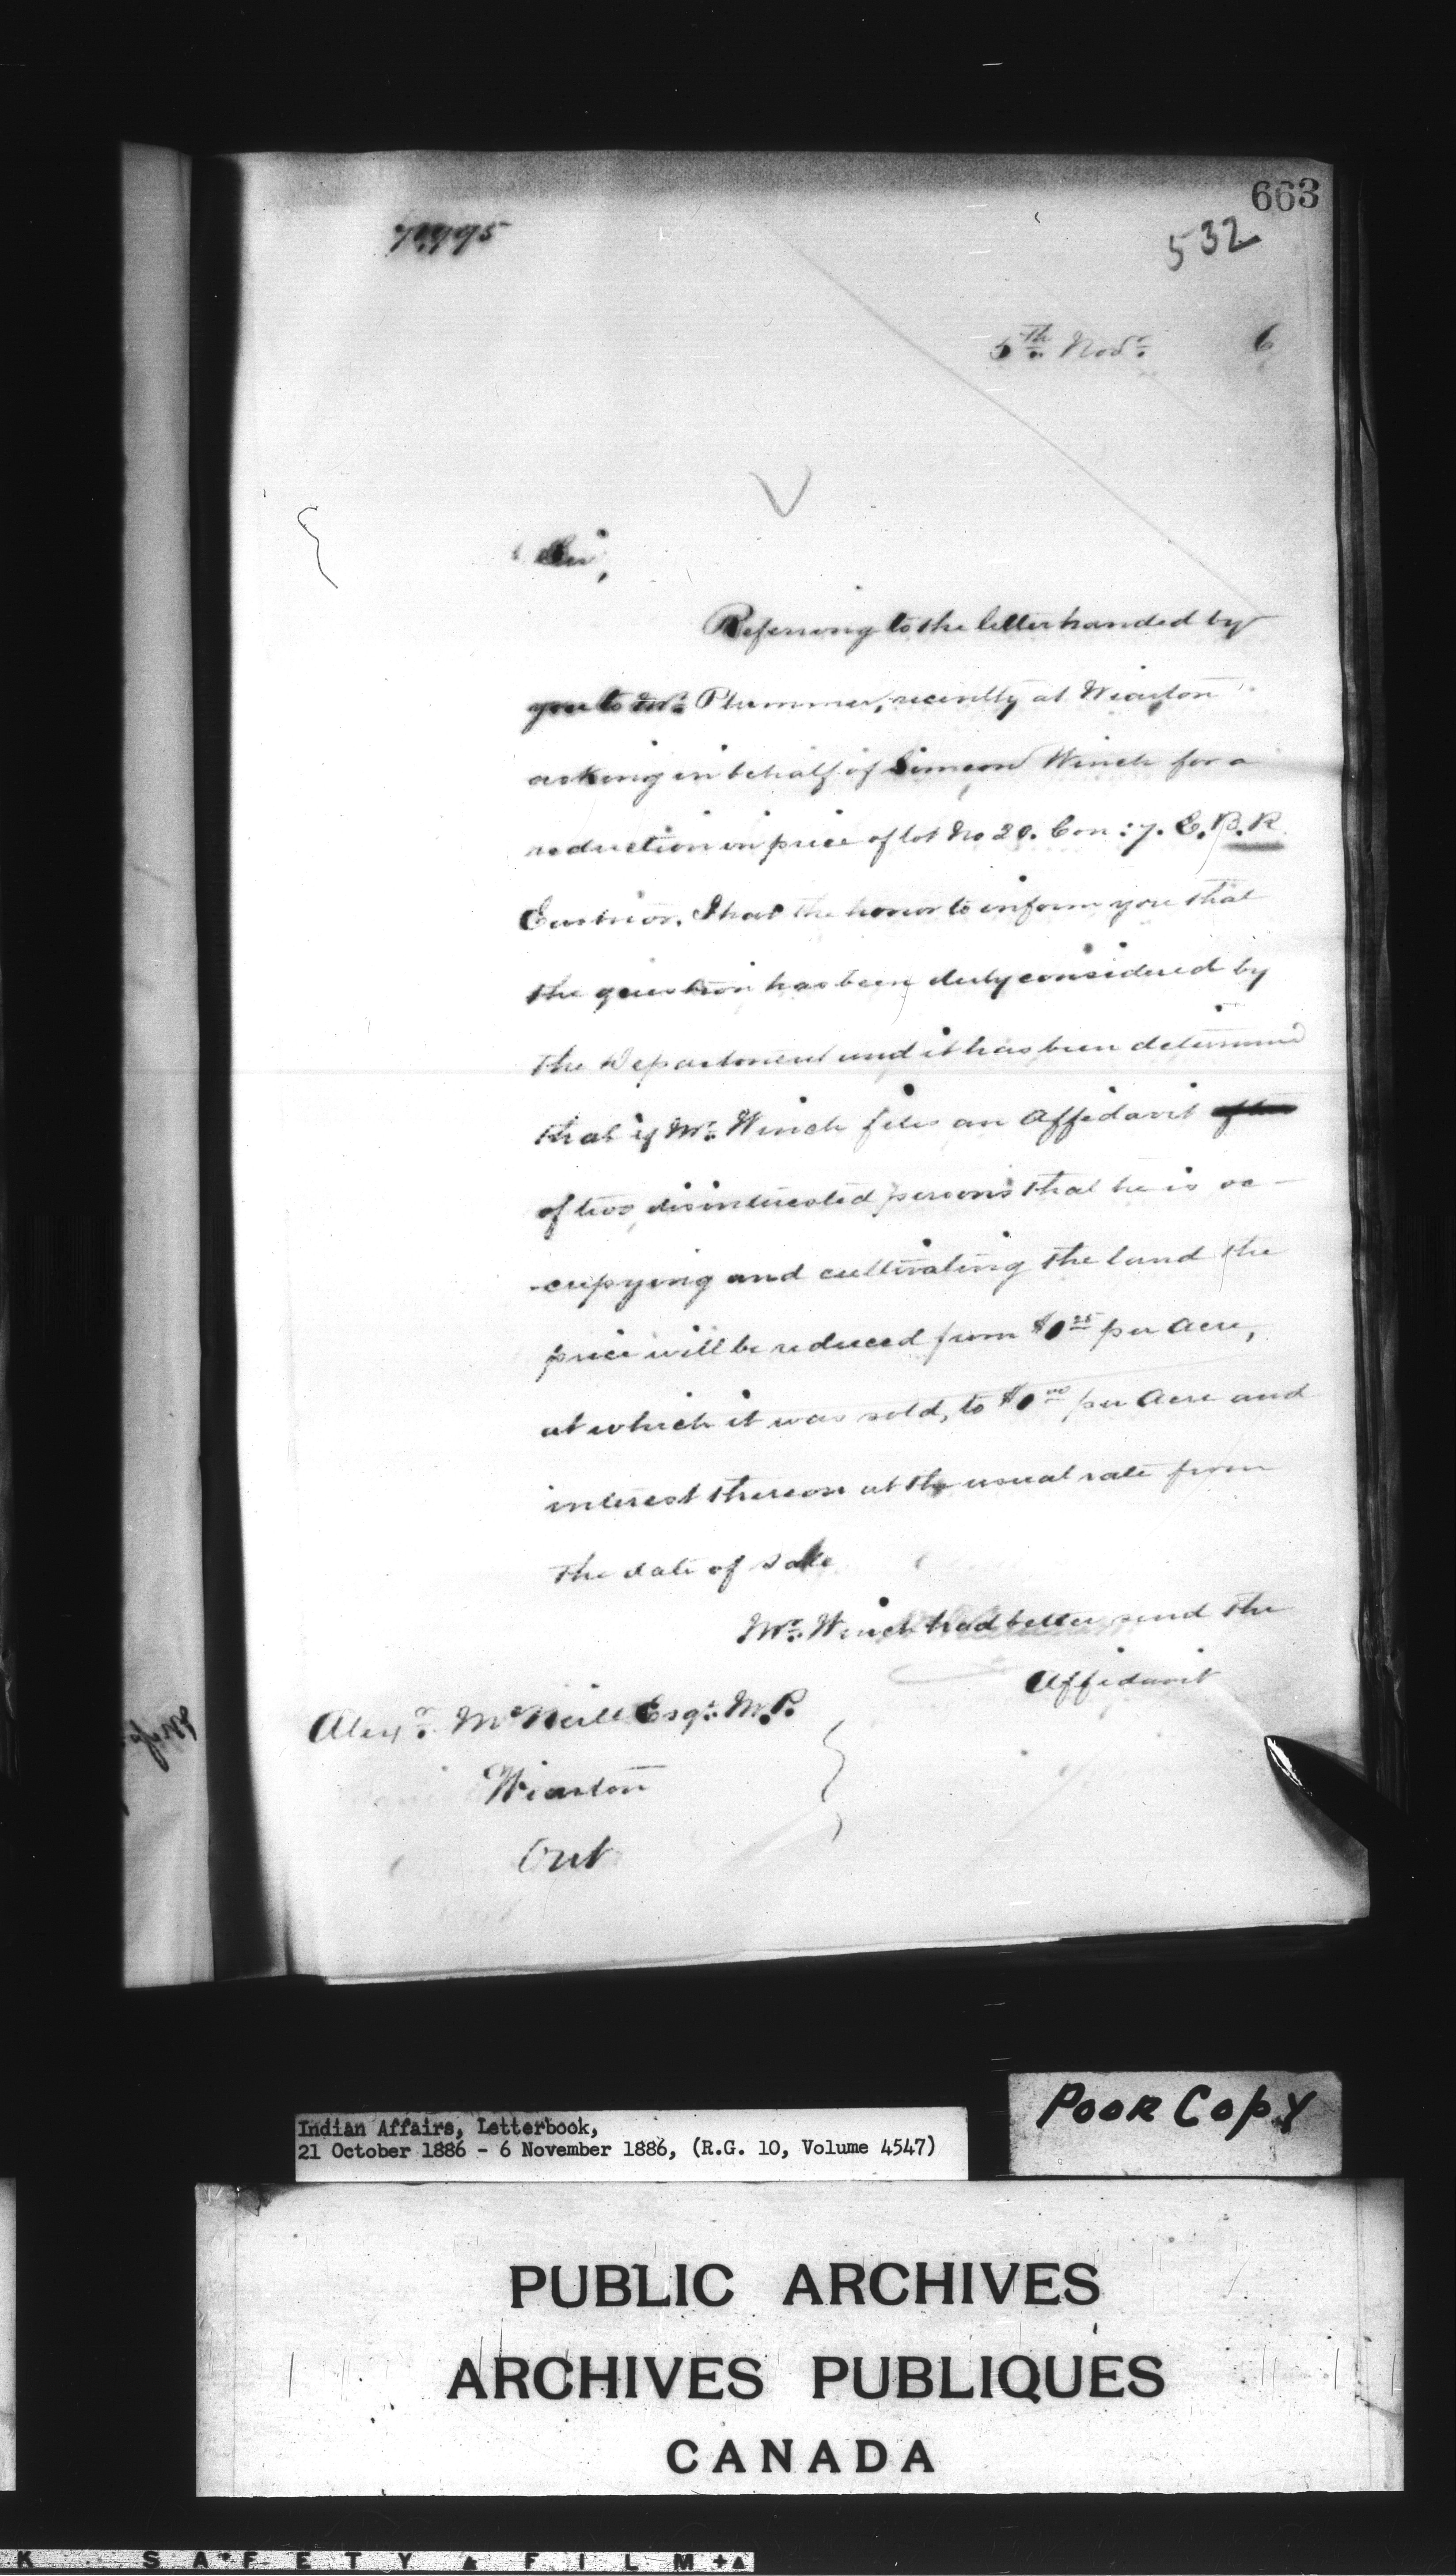 663
532
5th Novr 6
Sir,
Referring to the letter handed by
you to Mr. Plummer, recently at Wiarton
asking in behalf of Simeon Winch for a
reduction in price of lot No 20. Con: 7. E.B.R.
Eastnor. I have the honor to inform you that
the question has been duly considered by
the Department and it has been determined
that if Mr. Winch files an Affidavit
of two disinterested persons that he is oc-
-cupying and cultivating the land the
price will be reduced from per Acre,
at which it was sold, to per Acre and
interest thereon at the usual rate from
the date of sale
Mr. Winch had better send the
Affidavit
Alexr. McNeill Esqr. M.P.
Wiarton
Ont
Indian Affairs, Letterbook,
21 October 1886 - 6 November 1886, (R.G. 10, Volume 4547)
POOR COPY
PUBLIC ARCHIVES
ARCHIVES PUBLIQUES
CANADA
K SAFETY FILM